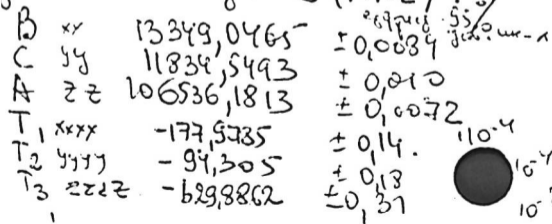 B xx 13349,0465 ± 0,0084
C yy 11834,5493 ± 0,010
A zz 106536,1813 ± 0,0072
T1 xxxx -177,9735 ± 0,14.
T2 yyyy - 94,305 ± 0,18
T3 zzzz - 629,8862 ± 0,31
·10-4
10-4
10-